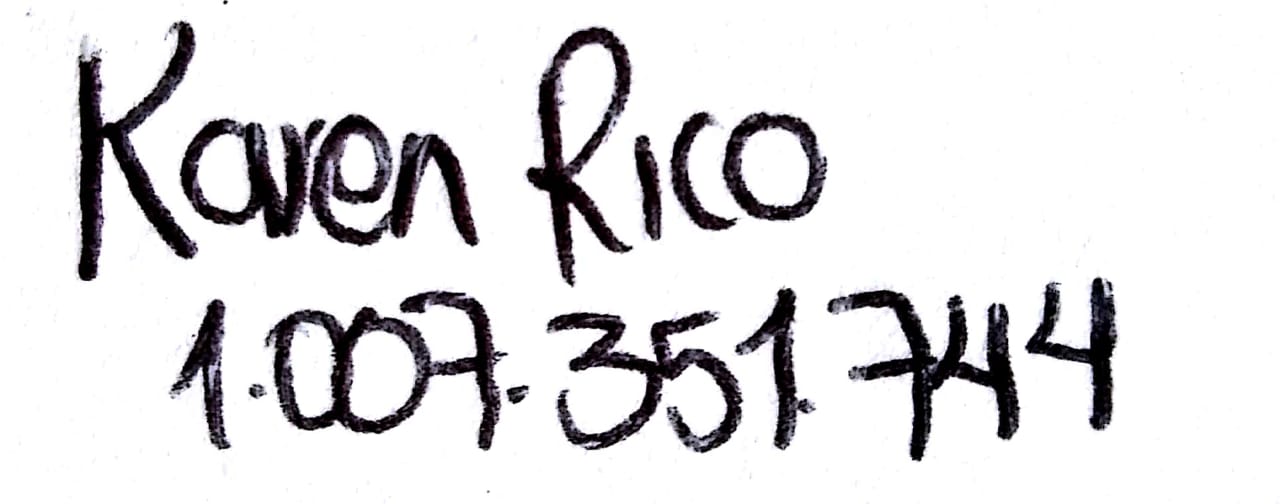 Karen Rico
1.007.351.744